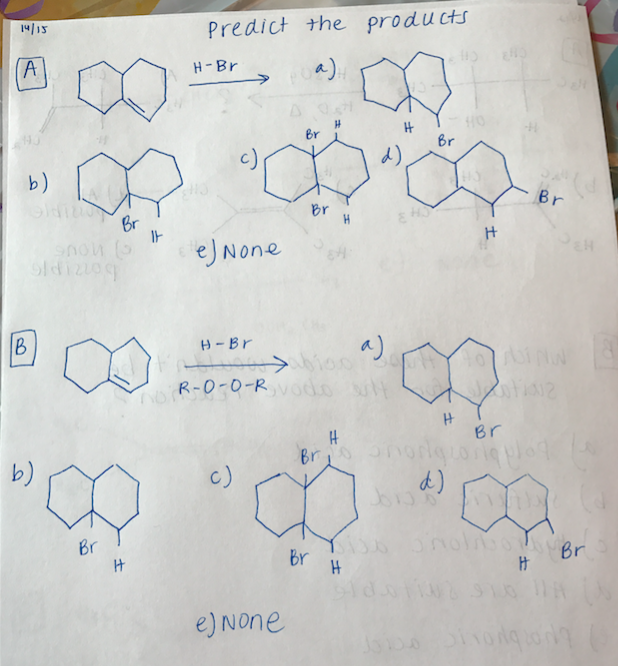 14/15
Predict the products
A
H-Br
a)
H
Br
b)
Br
H
c)
Br
H
Br
H
d)
Br
H
e) None
B
H-Br
R-O-O-R
a)
H
Br
b)
Br
H
c)
Br
H
Br
H
d)
H
Br
e) None